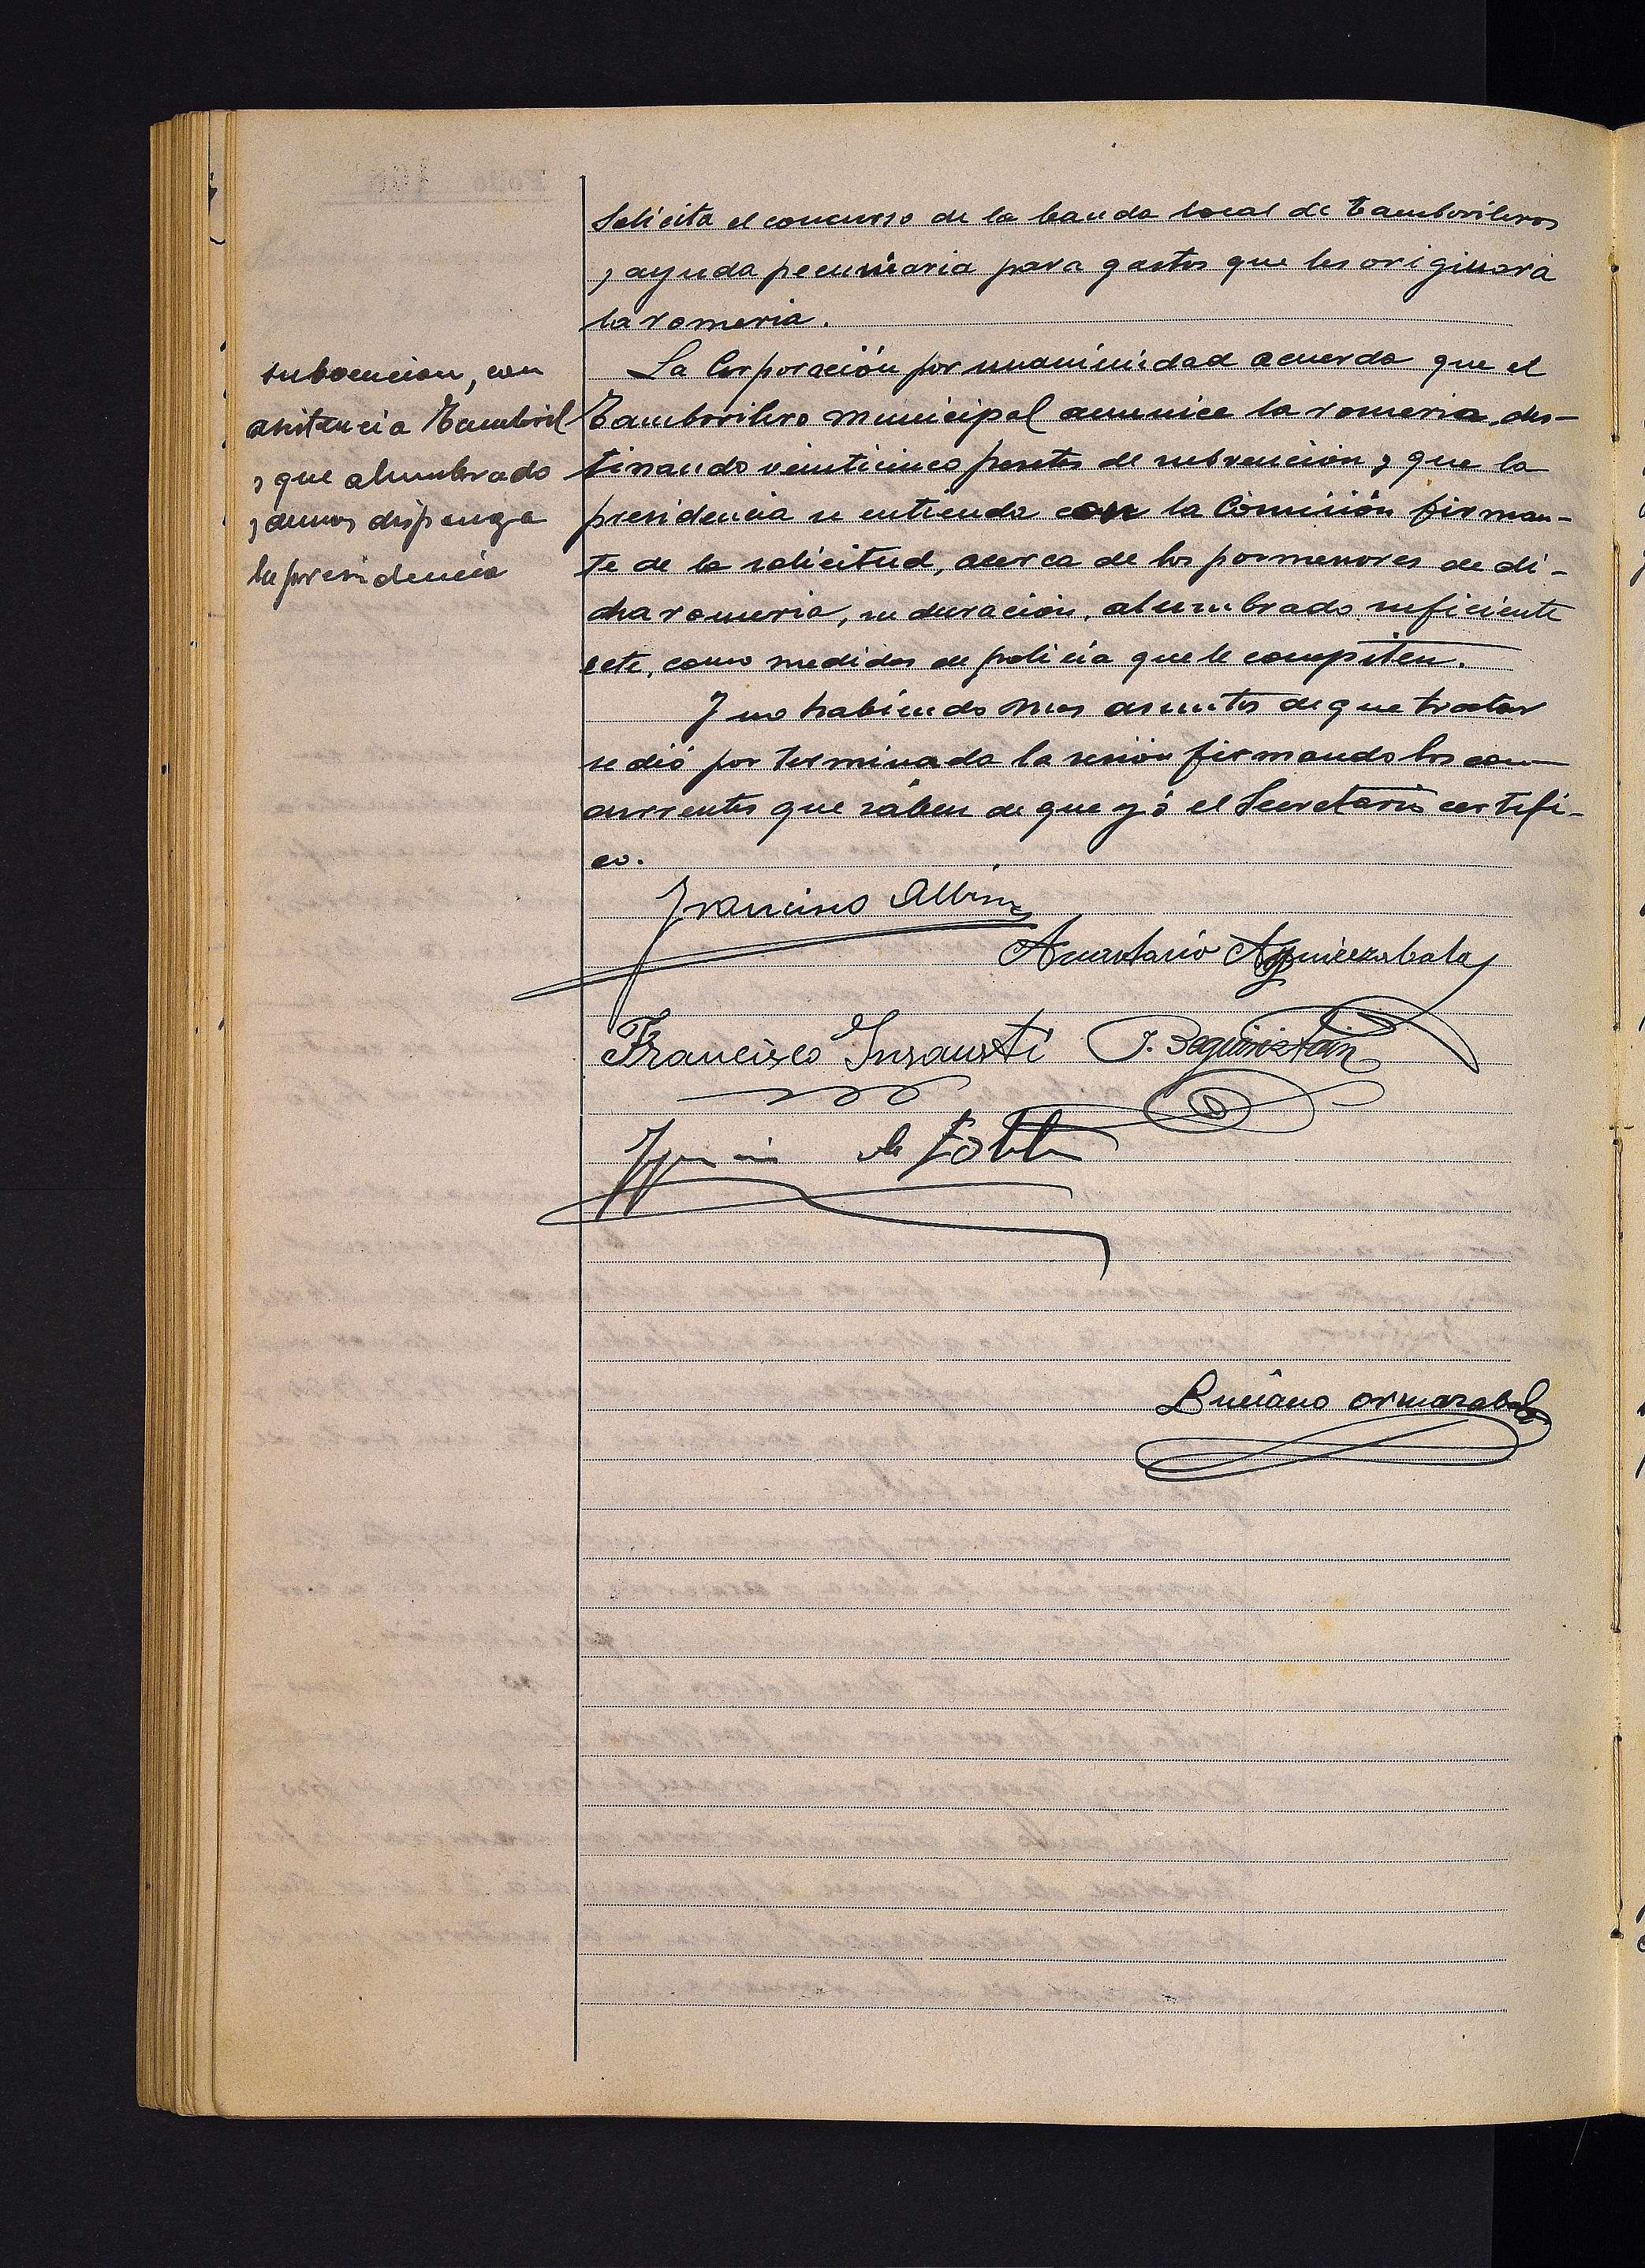 Solicita el concurso de la banda local de tamborileros
y ayuda pecuniaria para gastos que les originará
la romeria.
subvencion, con
asistencia Tamboril
y que alumbrado
y demas disponga
la presidencia
La Corporación por unanimidad acuerda que el
Tamborilero municipal amenice la romeria, des-
tinando veinticinco pesetas de subvención y que la
presidencia se entienda con la Comisión firman-
te de la solicitud, acerca de los pormenores de di-
cha romeria, su duración, alumbrado suficiente
ect, como medidas de policía que le compiten.
Y no habiendo mas asuntos de que tratar
se dió por terminada la sesión firmando los con-
currentes que sáben de que yó el Secretario certifi-
co.
Francisco Albisu
Anastasio Aguirrezabala
Francisco Insausti J. Beguiristain
Ignacio de
Luciano Ormazabal